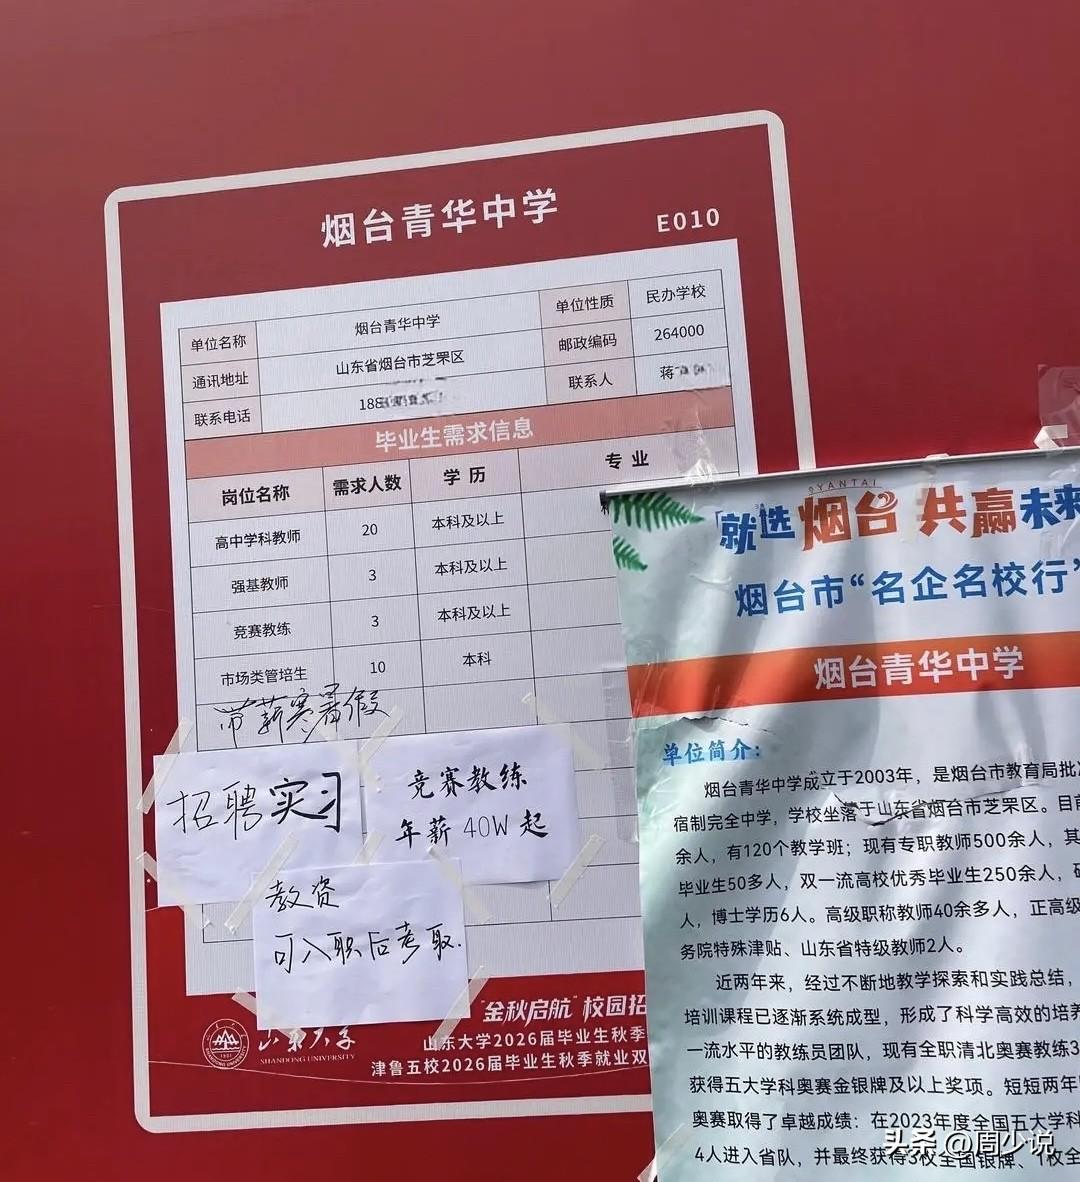 烟台青华中学
E010
单位名称 烟台青华中学 单位性质 民办学校
通讯地址 山东省烟台市芝罘区 邮政编码 264000
联系电话 188 联系人 蒋
毕业生需求信息
岗位名称 需求人数 学历 专业
高中学科教师 20 本科及以上
强基教师 3 本科及以上
竞赛教练 3 本科及以上
市场类管培生 10 本科
带薪寒暑假
招聘实习
竞赛教练
年薪40W起
教资
可入职后考取.
"金秋启航"校园招
山东大学
SHANDONG UNIVERSITY
1901
山东大学2026届毕业生秋季
津鲁五校2026届毕业生秋季就业双
YANTAI
「就选烟台 共赢未来
烟台市“名企名校行”
烟台青华中学
单位简介：
烟台青华中学成立于2003年，是烟台市教育局批
宿制完全中学，学校坐落于山东省烟台市芝罘区。目前
余人，有120个教学班；现有专职教师500余人，其
毕业生50多人，双一流高校优秀毕业生250余人，
人，博士学历6人。高级职称教师40余多人，正高级
务院特殊津贴、山东省特级教师2人。
近两年来，经过不断地教学探索和实践总结，
培训课程已逐渐系统成型，形成了科学高效的培养
一流水平的教练员团队，现有全职清北奥赛教练3
获得五大学科奥赛金银牌及以上奖项。短短两年
奥赛取得了卓越成绩：在2023年度全国五大学科
4人进入省队，并最终获得3枚全国银牌、1枚全
头条 @周少说